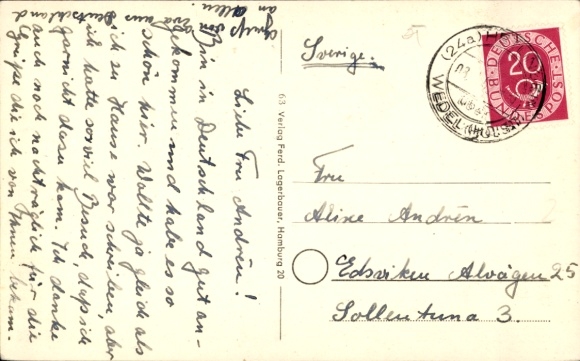 Liebe Fru Andrén!
Bin in Deutschland gut an-
gekommen und habe es so
schön hier. Wollte ja gleich als
ich zu Hause war schreiben aber
ich hatte soviel Besuch daß ich
garnicht dazu kam. Ich danke
auch noch nachträglich für die
Grüße die ich von Ihnen bekam.
Gruß von Eva aus Deutschland
an allen.
63 Verlag Ferd. Lagerbauer, Hamburg 20
Sverige.
(24a)
WEDEL (HOLST)
DEUTSCHE BUNDESPOST
20
Fru
Aline Andrén
Edsviken Alvägen 25
Sollentuna 3.